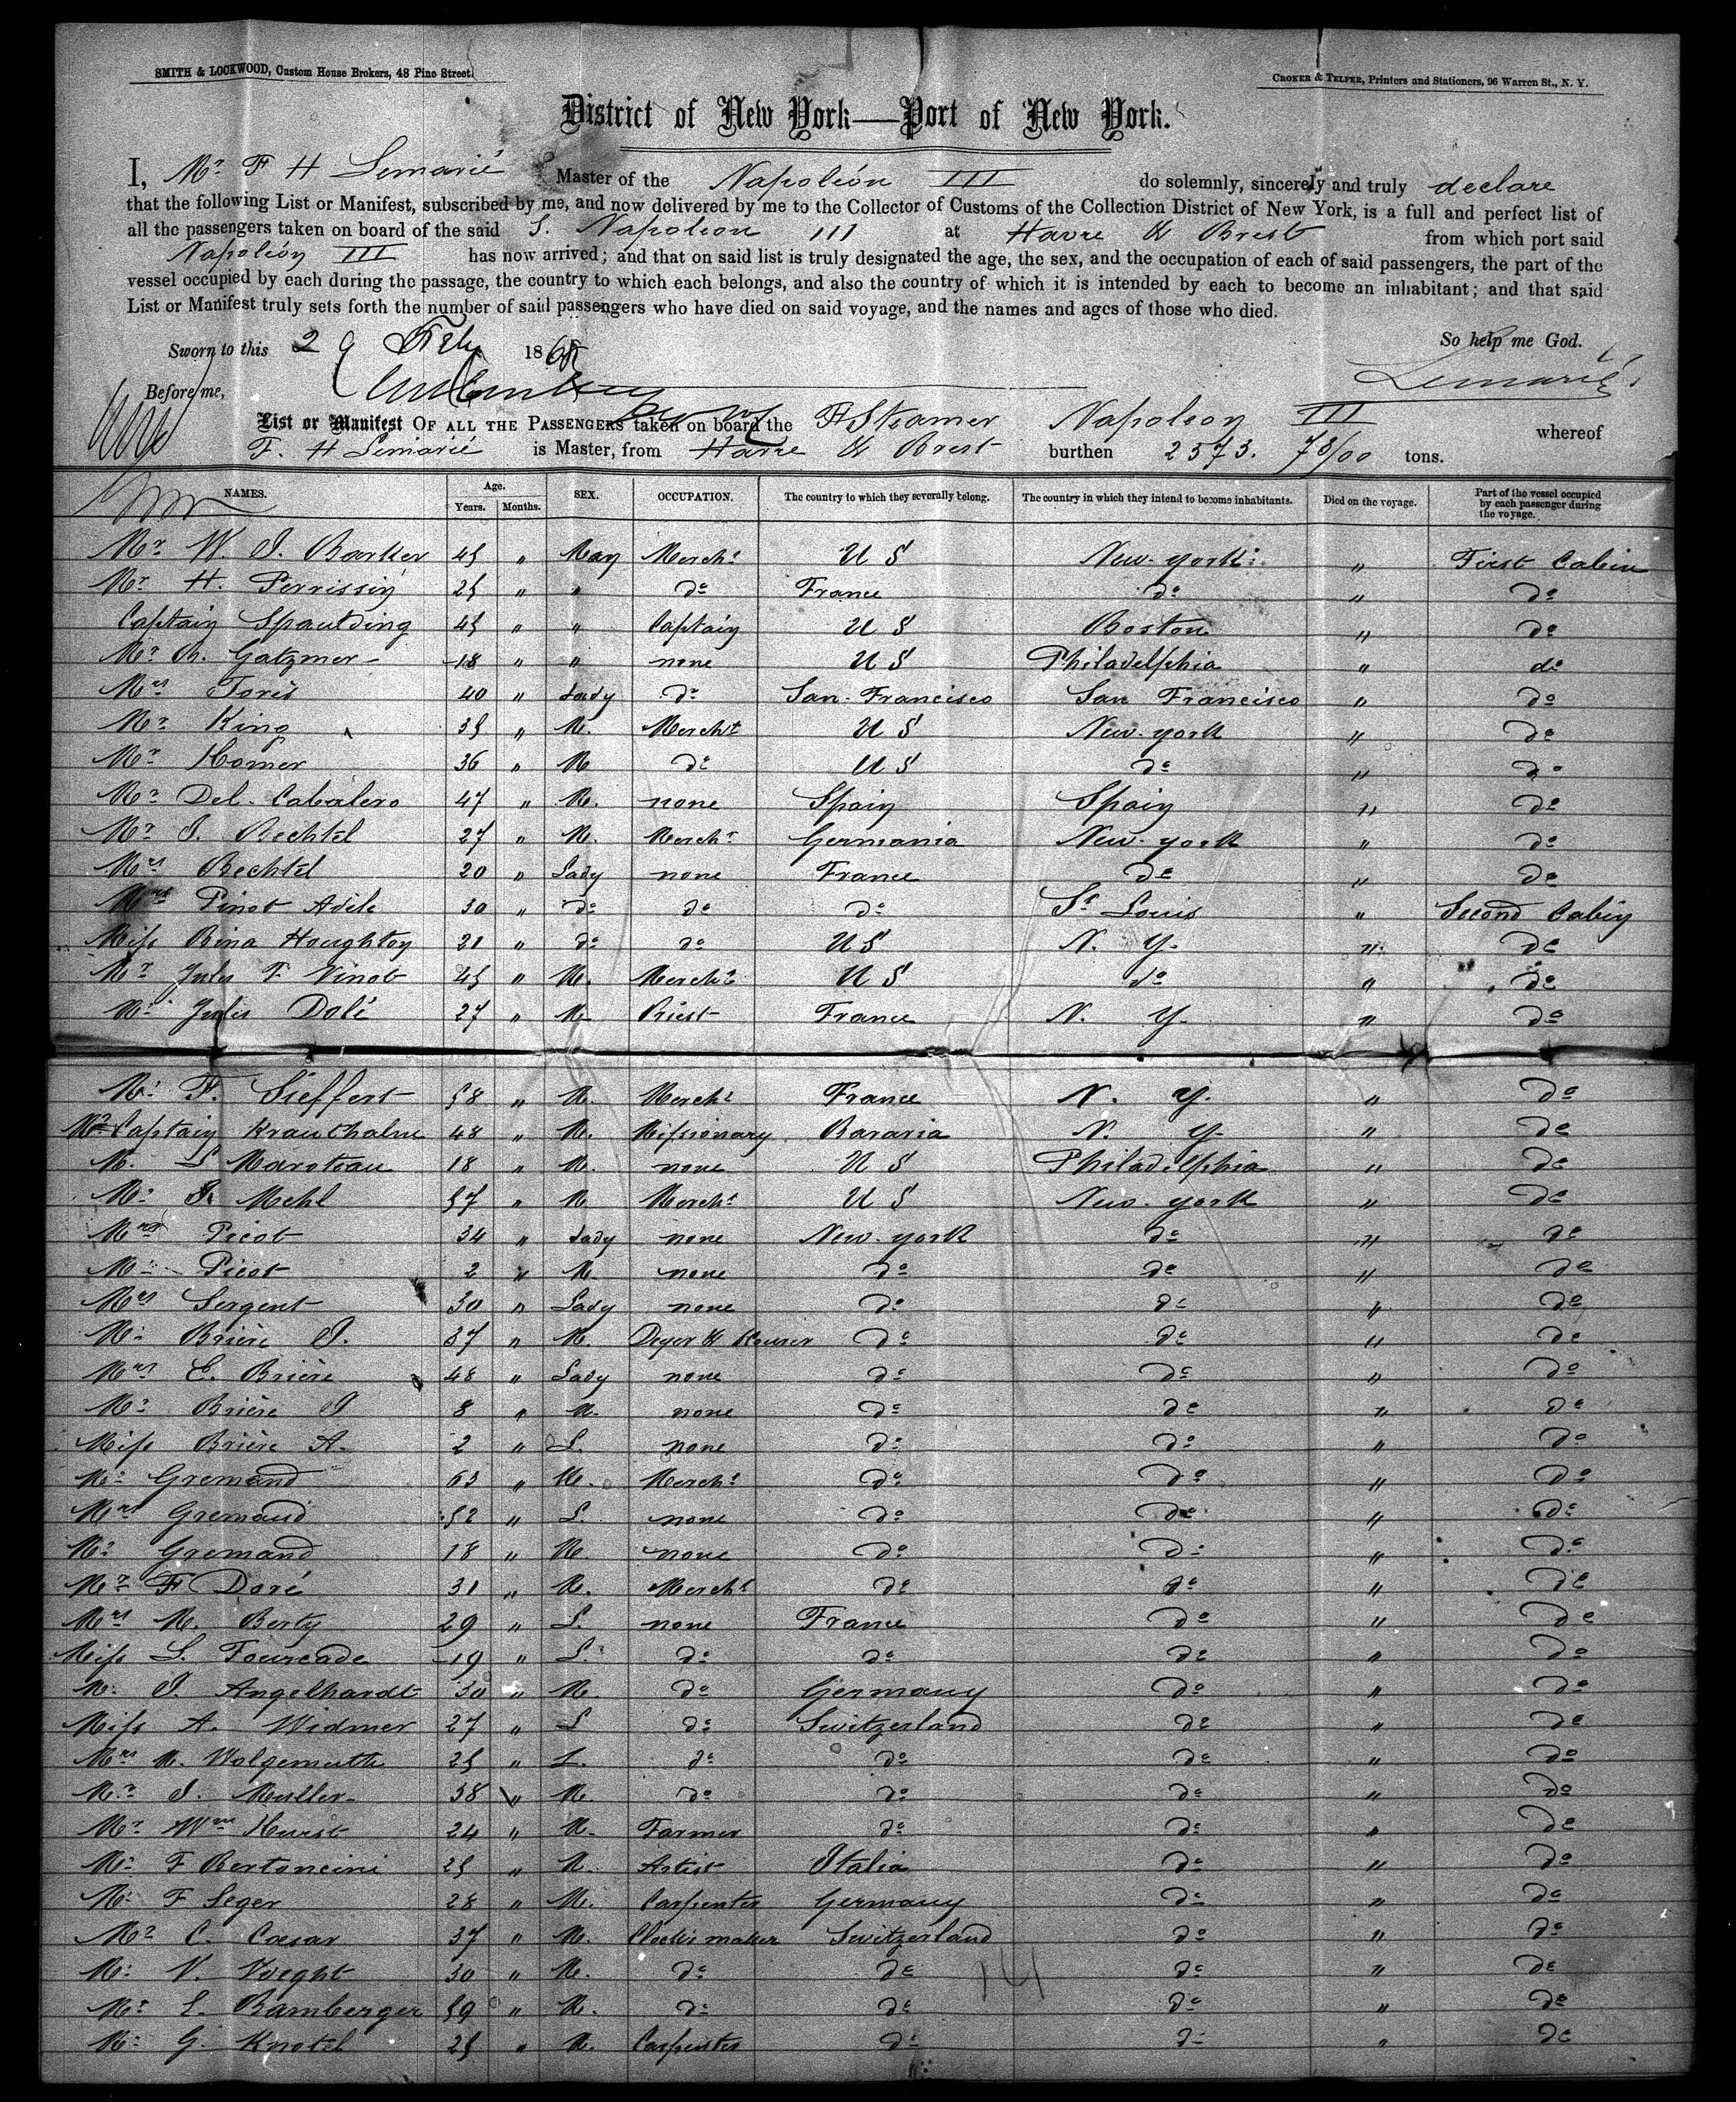 SMITH & LOCKWOOD, Custom House Brokers, 48 Pine Street.
CROKER & TELFER, Printers and Stationers, 96 Warren St., N. Y.
District of New York—Port of New York.
I, Mr F H Lemarié Master of the Napoléon III do solemnly, sincerely and truly declare
that the following List or Manifest, subscribed by me, and now delivered by me to the Collector of Customs of the Collection District of New York, is a full and perfect list of
all the passengers taken on board of the said S. Napoleon III at Havre & Brest from which port said
Napoléon III has now arrived; and that on said list is truly designated the age, the sex, and the occupation of each of said passengers, the part of the
vessel occupied by each during the passage, the country to which each belongs, and also the country of which it is intended by each to become an inhabitant; and that said
List or Manifest truly sets forth the number of said passengers who have died on said voyage, and the names and ages of those who died.
So help me God.
Sworn to this 29 Feby 1868
Lemarié
Before me,
List or Manifest OF ALL THE PASSENGERS taken on board the Steamer Napoleon III whereof
F. H Lemarié is Master, from Havre & Brest burthen 2573. 78/00 tons.
NAMES. Age. Years. Months. SEX. OCCUPATION. The country to which they severally belong. The country in which they intend to become inhabitants. Died on the voyage. Part of the vessel occupied by each passenger during the voyage.
Mr W. J. Barker 45 " Man Mercht U S New-york " First Cabin
Mr H. Perrissin 25 " " do France do " do
Captain Spaulding 45 " " Captain U S Boston " do
Mr Gatzmer 18 " " none U S Philadelphia " do
Mrs Toris 40 " Lady do San-Francisco San Francisco " do
Mr King 35 " M. Mercht U S New-york " do
Mr Homer 36 " M do U S do " do
Mr Del-Cabalero 47 " M. none Spain Spain " do
Mr J. Bechtel 27 " M. Mercht Germania New-york " do
Mrs Bechtel 20 " Lady none France do " do
Mrs Pinot Adile 30 " do do do St Louis " Second Cabin
Miss Rina Houghton 21 " do do U S N. Y. " do
Mr Jules F. Vinot 45 " M. Mercht U S do " do
Mr Jules Dolé 27 " M Priest France N. Y. " do
Mr F. Sieffert 58 " M. Mercht France N. Y. " do
Mr Captain Krauthalm 48 " M. Missionary Bavaria N. Y. " do
M. L Maroteau 18 " M. none U S Philadelphia " do
Mr J. Mehl 57 " M Mercht U S New-york " do
Mrs Picot 34 " Lady none New-york do " do
Mr Picot 2 " M. none do do " do
Mrs Sergent 30 " Lady none do do " do
Mr Brière J. 37 " M. Dyer & do do " do
Mrs E. Brière 48 " Lady none do do " do
Mr Brière J 8 " M. none do do " do
Miss Brière A. 2 " L. none do do " do
Mr Gremaud 63 " M. Mercht do do " do
Mrs Gremaud 52 " L. none do do " do
Mr Gremaud 18 " M. none do do " do
Mr F Doré 31 " M. Mercht do do " do
Mrs M. Berty 29 " L. none France do " do
Miss L. Fourcade 19 " L. do do do " do
Mr J. Angelhardt 30 " M. do Germany do " do
Miss A. Widmer 27 " L do Switzerland do " do
Mrs M. Wolgemuth 25 " L. do do do " do
Mr J. Muller 38 " M. do do do " do
Mr Wm Hurst 24 " M. Farmer do do " do
Mr F Bertoncini 25 " M. Artist Italia do " do
Mr F Seger 28 " M. Carpenter Germany do " do
Mr C. Cæsar 37 " M. Clocks maker Switzerland do " do
Mr V. Voeght 30 " M. do do do " do
Mr L. Bamberger 59 " M. do do do " do
Mr G. Knotel 25 " M. Carpenter do do " do
141